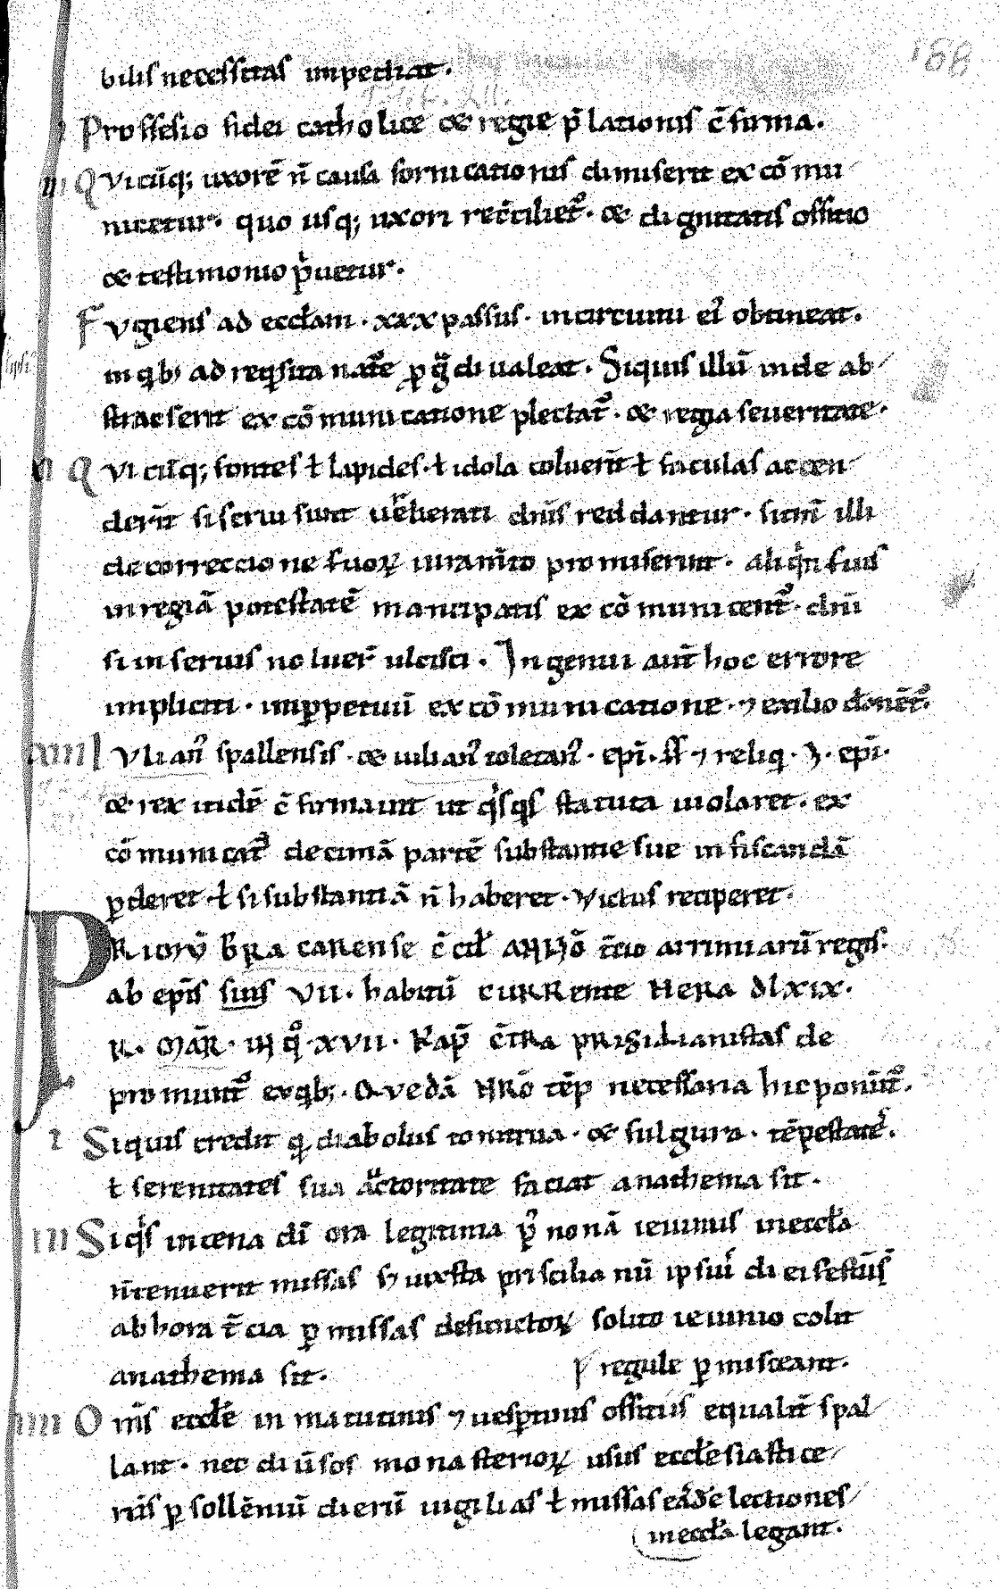 168
bilis necessitas impediat.
Professio fidei catholice & regie p̄lationis c̄firma.
iii Qvicūq; uxorē n̄ causa fornicationis dimiserit excōmu
nicetur. quo usq; uxori rec̄cilietᷣ. & dignitatis offitio
& testimonio p̄uetur.
Fvgiens ad eccłam. xxx passus. in circuitu eiꝰ obtineat.
in qibꝫ ad reqisita natᷣe ꝑgdi ualeat. Siquis illū inde ab
straxerit excōmunicatione plectatᷣ. & regia seueritate.
vi Qvicūq; fontes ł lapides. ł idola coluerīt ł faculas accen
derīt si serui sunt uerberati dn̄is reddantur. si tam̄ illi
de correccione suoꝝ iuram̄to promiserint. alioqin suis
in regiā potestatē mancipatis excōmunicentᷣ. dn̄i
si in seruis noluer̄ ulcisci. Ingenui aut̄ hoc errore
impliciti. inꝑpetuū excōmunicatione. ⁊ exilio dānētᷣ.
xiiii Ivlianꝰ spallensis. & iulianꝰ toletanꝰ. ep̄i. ss ⁊ reliq. ep̄i.
& rex itidē c̄firmaunt ut qisqis statuta uiolaret. ex
cōmunicatᷣ decimā partē substantie sue infiscandā
ꝑderet ł si substantiā n̄ haberet. victus reciperet.
PRiorū bracarense c̄cił anno t̄cio arrimiarū regis.
ab ep̄is suis VII. habitū currente hera dlxix.
R. mar̄. in qo. xvii. kap̄ c̄tra prisilianistas de
promuntᷣ. ex qibꝫ. qvedā nrō tēp necessaria hic ponūtᷣ.
i Siquis credit q diabolus tonitrua. & fulgura. tēpestates.
ł serenitates sua auctoritate faciat anathema sit.
iii Siqis in cena dn̄i ora legitima p nonā ieiunus in eccła
n̄ tenuerit missas s; iuxta priscilianū ipsiuꝰ diei festiuīs
ab hora t̄cia ꝑ missas defunctoꝝ soluto ieiunio colit
anathema sit.
regule ꝑmisceant.
iiii Omīs eccłe in matutinis ⁊ uesꝑtinis offitiis equalit̄ spal
lant. nec diūsos monasterioꝝ usus eccłesiastice
nīs ꝑ sollēniū dierū uigilias ł missas eāde lectiones
in eccła legant.